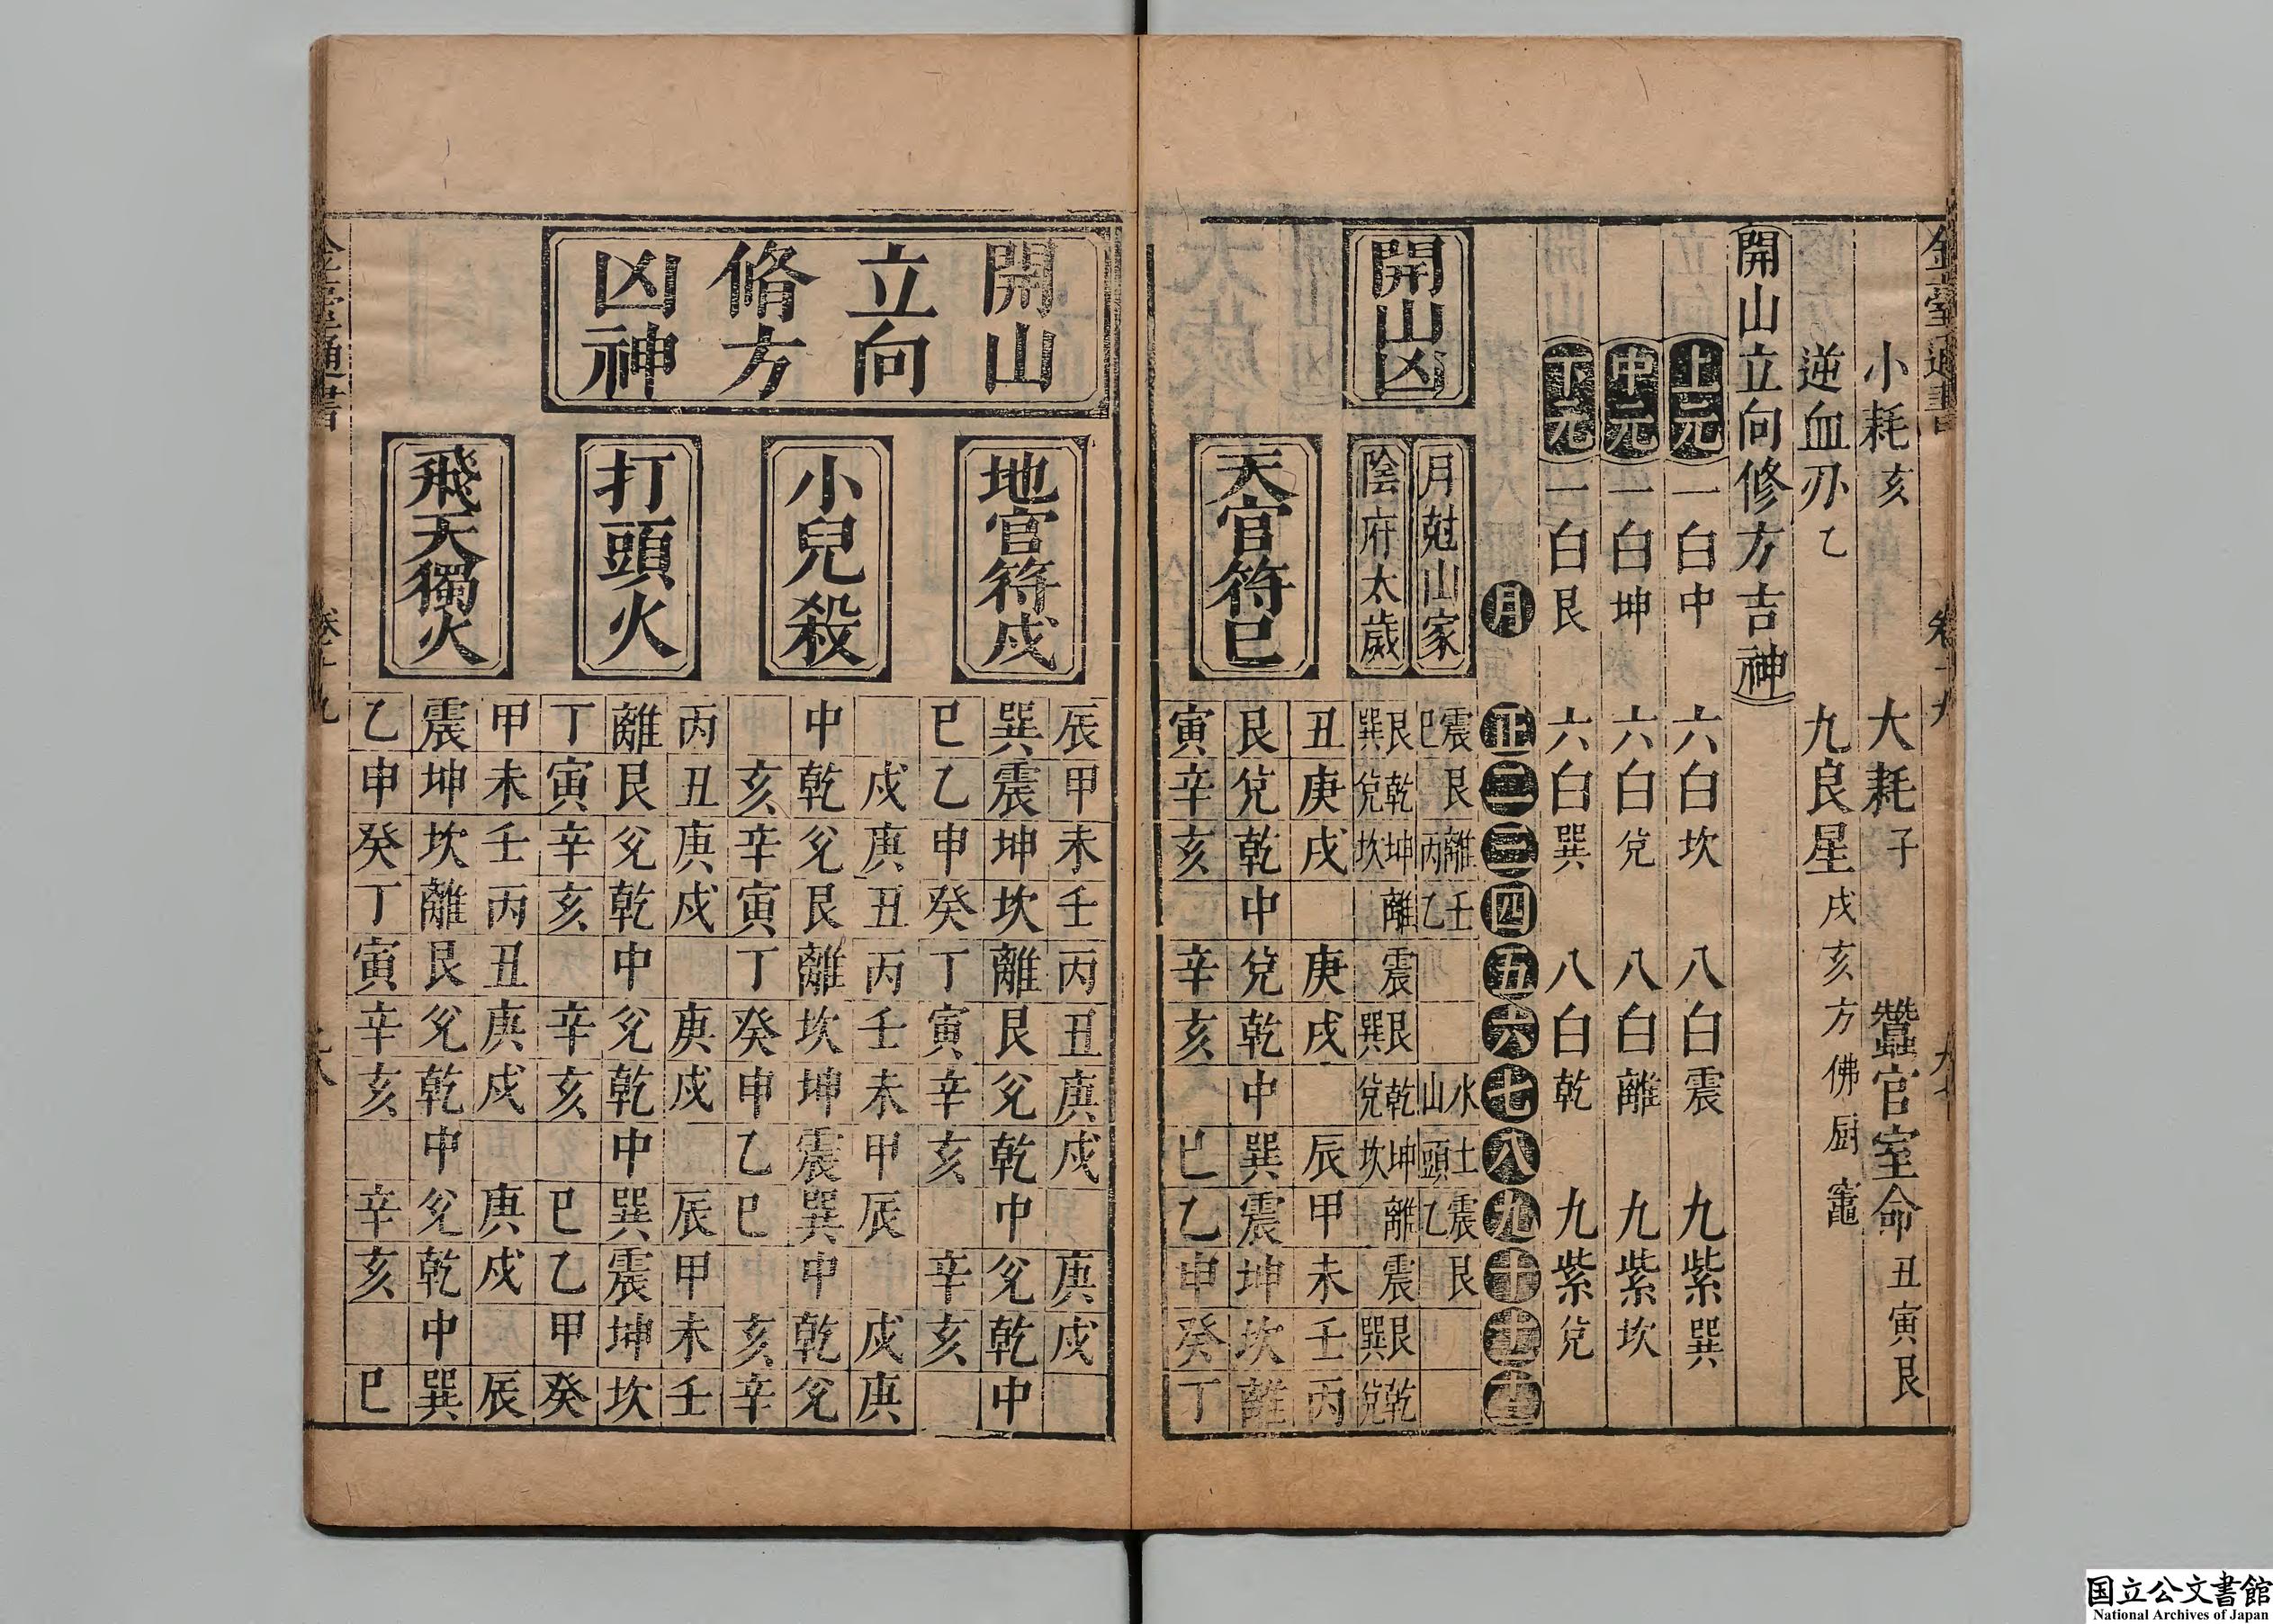 小耗亥 大耗子 蠶官室命丑寅艮
逆血刃乙 九良星戌亥方佛厨竈
開山立向修方吉神
上元 一白中 六白坎 八白震 九紫巽
中元 一白坤 六白兌 八白離 九紫坎
下元 一白艮 六白巽 八白乾 九紫兌
月 正 二 三 四 五 六 七 八 九 十 十一 十二
開山凶
月尅山家 震巳 艮 離丙 壬乙 水山 土頭 震乙 艮
陰府太歲 艮巽 乾兌 坤坎 離 震 艮巽 乾兌 坤坎 離 震 艮巽 乾兌
天官符巳
丑 庚 戌 庚 戌 辰 甲 未 壬 丙
艮 兌 乾 中 兌 乾 中 巽 震 坤 坎 離
寅 辛 亥 辛 亥 巳 乙 申 癸 丁
開山
立向
脩方
凶神
地官符戌
辰 甲 未 壬 丙 丑 庚 戌 庚 戌
巽 震 坤 坎 離 艮 兊 乾 中 兊 乾 中
巳 乙 申 癸 丁 寅 辛 亥 辛 亥
小兒殺
戌 庚 丑 丙 壬 未 甲 辰 戌 庚
中 乾 兊 艮 離 坎 坤 震 巽 中 乾 兊
亥 辛 寅 丁 癸 申 乙 巳 亥 辛
打頭火
丙 丑 庚 戌 庚 戌 辰 甲 未 壬
離 艮 兊 乾 中 兊 乾 中 巽 震 坤 坎
丁 寅 辛 亥 辛 亥 巳 乙 甲 癸
飛天獨火
甲 未 壬 丙 丑 庚 戌 庚 戌 辰
震 坤 坎 離 艮 兊 乾 中 兊 乾 中 巽
乙 申 癸 丁 寅 辛 亥 辛 亥 巳
国立公文書館
National Archives of Japan